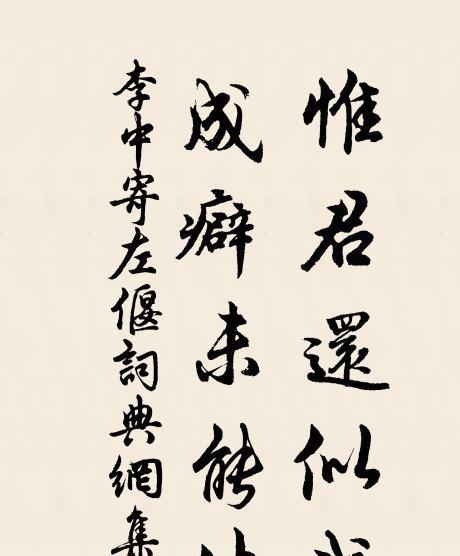 惟君還似
成癖未能
李中寄左偃詞典網集